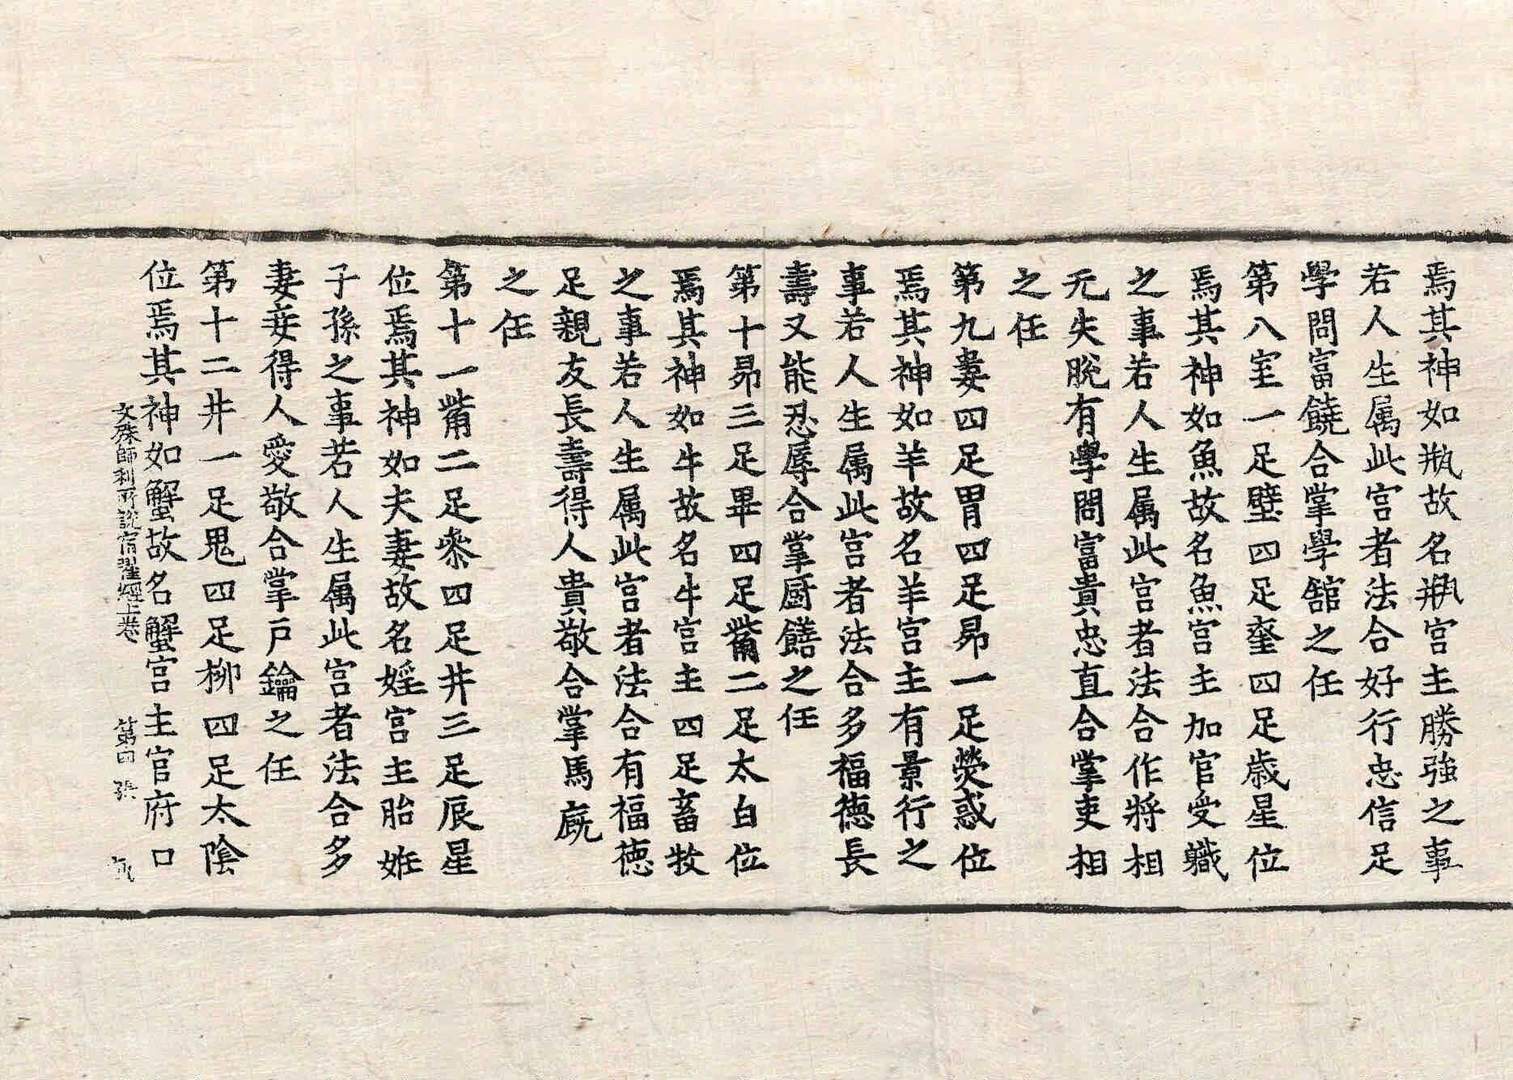 焉其神如瓶故名瓶宫主勝強之事
若人生属此宫者法合好行忠信足
學問富饒合掌學舘之任
第八室一足壁四足奎四足歳星位
焉其神如魚故名魚宫主加官受軄
之事若人生属此宫者法合作將相
无失脫有學問富貴忠直合掌吏相
之任
第九婁四足胃四足昴一足熒惑位
焉其神如羊故名羊宫主有景行之
事若人生属此宫者法合多福徳長
壽又能忍辱合掌厨饍之任
第十昴三足畢四足觜二足太白位
焉其神如牛故名牛宫主四足畜牧
之事若人生属此宫者法合有福徳
足親友長壽得人貴敬合掌馬廐
之任
第十一觜二足参四足井三足辰星
位焉其神如夫妻故名婬宫主胎姙
子孫之事若人生属此宫者法合多
妻妾得人愛敬合掌戸鑰之任
第十二井一足鬼四足柳四足太陰
位焉其神如蟹故名蟹宫主官府口
文殊師利所說宿曜經上卷 第四張